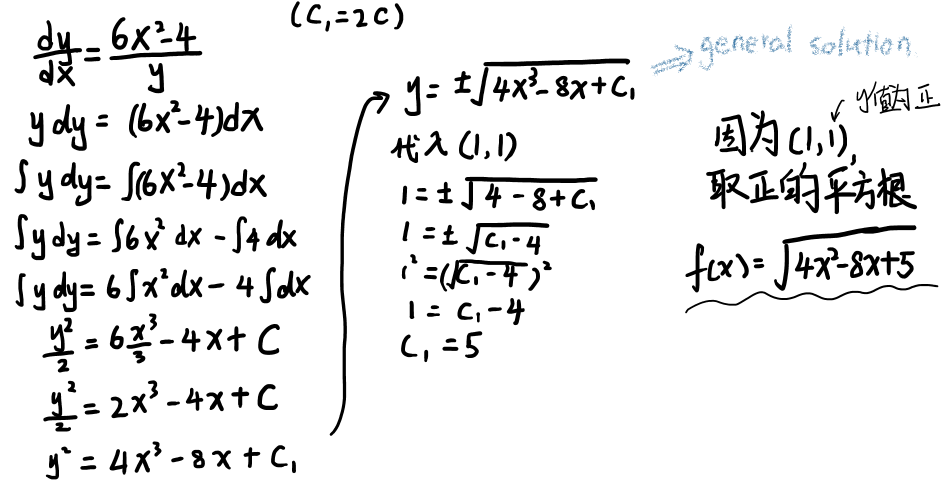 dy/dx = 6x²-4/y
y dy = (6x²-4)dx
∫ y dy = ∫(6x²-4)dx
∫ y dy = ∫6x² dx - ∫4 dx
∫ y dy = 6∫x² dx - 4∫dx
y²/2 = 6 x³/3 - 4x + C
y²/2 = 2x³ - 4x + C
y² = 4x³ - 8x + C₁
(C₁=2C)
y = ±√(4x³-8x+C₁)
⇒ general solution
代入 (1,1)
1 = ±√(4-8+C₁)
1 = ±√(C₁-4)
1² = (√(C₁-4))²
1 = C₁-4
C₁ = 5
y值为正
因为 (1,1),
取正的平方根
f(x) = √(4x²-8x+5)